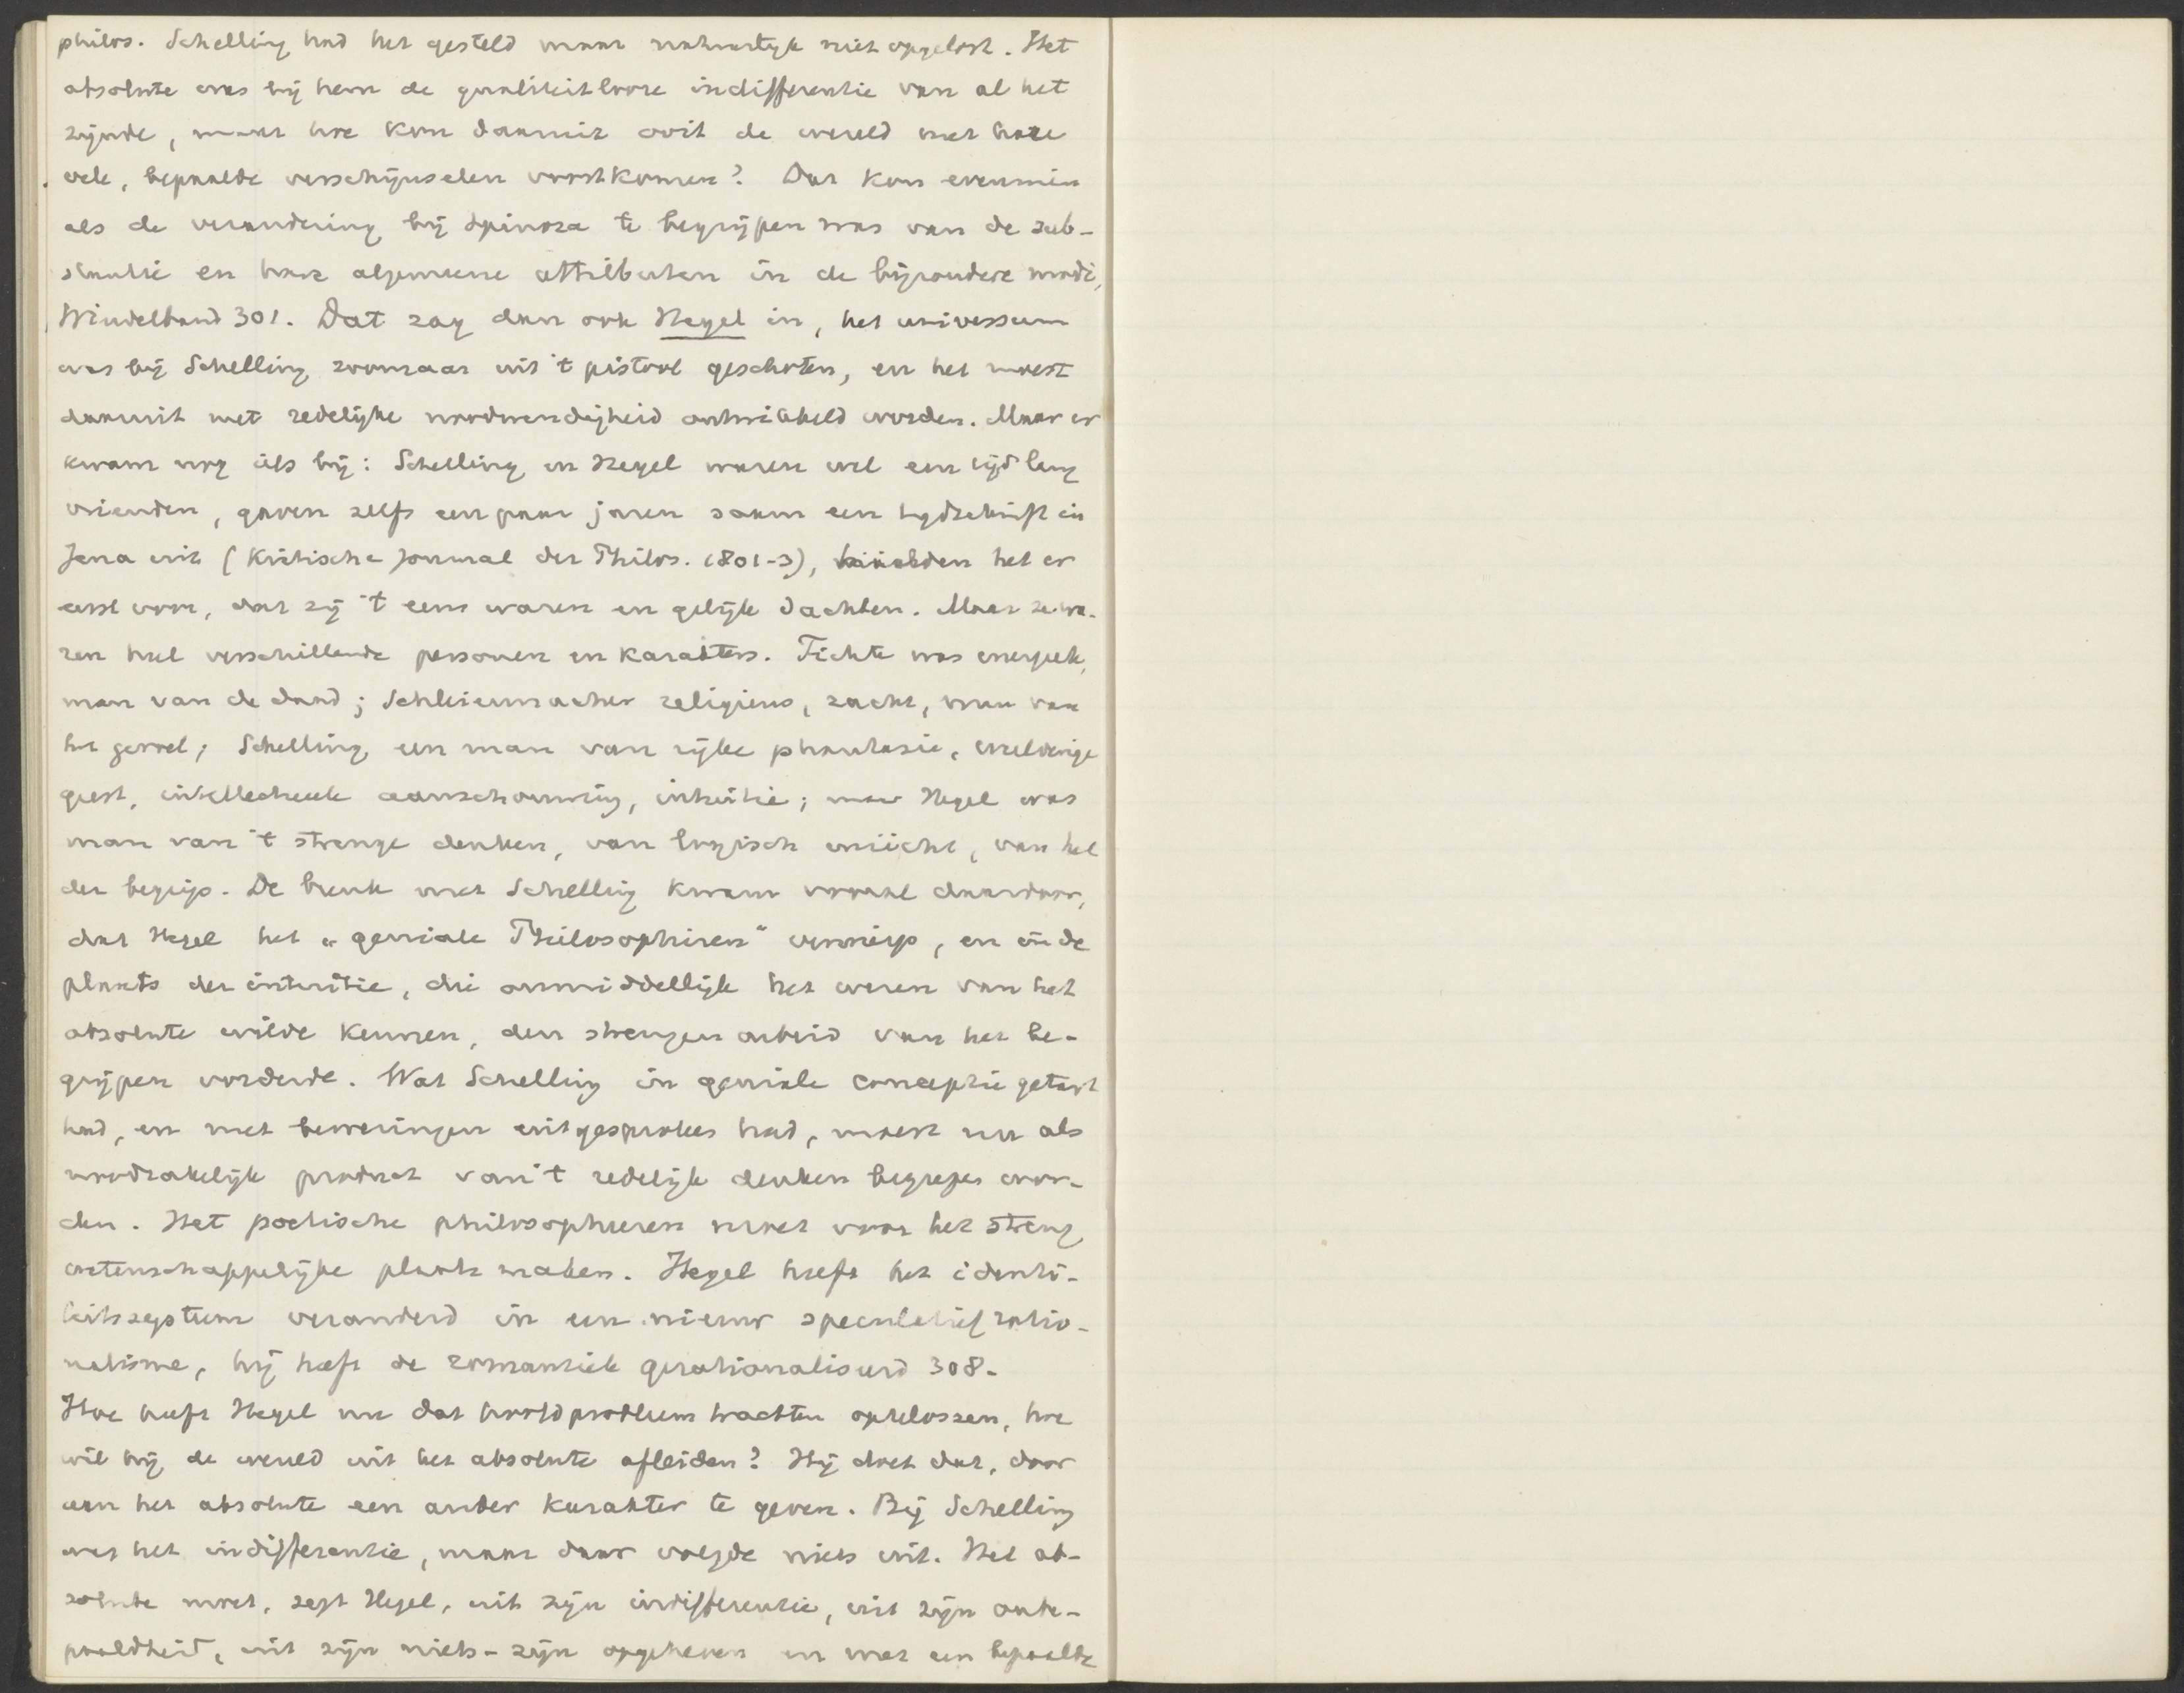 philos. Schelling had het gesteld maar natuurlijk niet opgelost. Het
absolute was bij hem de qualiteitlooze indifferentie van al het
zijnde, maar hoe kon daaruit ooit de wereld met hare
vele, bepaalde verschijnselen voortkomen? Dat kon evenmin
als de verandering bij Spinoza te begrijpen was van de sub-
stantie en hare algemeene attributen in de bijzondere modi,
Windelband 301. Dat zag dan ook Hegel in, het universum
was bij Schelling zoomaar uit 't pistool geschoten, en het moest
daaruit met redelijke noodwendigheid ontwikkeld worden. Maar er
kwam nog iets bij: Schelling en Hegel waren wel een tijd lang
vrienden, gaven zelfs een paar jaren saam een tijdschrift in
Jena uit (Kritische Journal der Philos. 1801-3), hielden het er
eerst voor, dat zij 't eens waren en gelijk dachten. Maar ze wa-
ren heel verschillende personen en karakters. Fichte was energiek,
man van de daad; Schleiermacher religieus, zacht, man van
het gevoel; Schelling een man van rijke phantasie, weelderige
geest, intellectueele aanschouwing, intuitie; maar Hegel was
man van 't strenge denken, van logisch inzicht, van hel
der begrip. De breuk met Schelling kwam vooral daardoor,
dat Hegel het „geniale Philosophiren" verwierp, en in de
plaats der intuitie, die onmiddellijk het wezen van het
absolute wilde kennen, den strengen arbeid van het be-
grijpen vorderde. Wat Schelling in geniale conceptie getast
had, en met beweringen uitgesproken had, moest nu als
noodzakelijk product van 't redelijk denken begrepen wor-
den. Het poetische philosopheeren moet voor het streng
wetenschappelijke plaats maken. Hegel heeft het identi-
teitssysteem veranderd in een nieuw speculatief ratio-
nalisme, hij heeft de romantiek gerationaliseerd 308-
Hoe heeft Hegel nu dat hoofdprobleem trachten oplossen, hoe
wil hij de wereld uit het absolute afleiden? Hij doet dat, door
aan het absolute een ander karakter te geven. Bij Schelling
was het indifferentie, maar daar volgde niets uit. Het ab-
solute moet, zegt Hegel, uit zijn indifferentie, uit zijn onbe-
paaldheid, uit zijn niets-zijn opgeheven en met een bepaalde